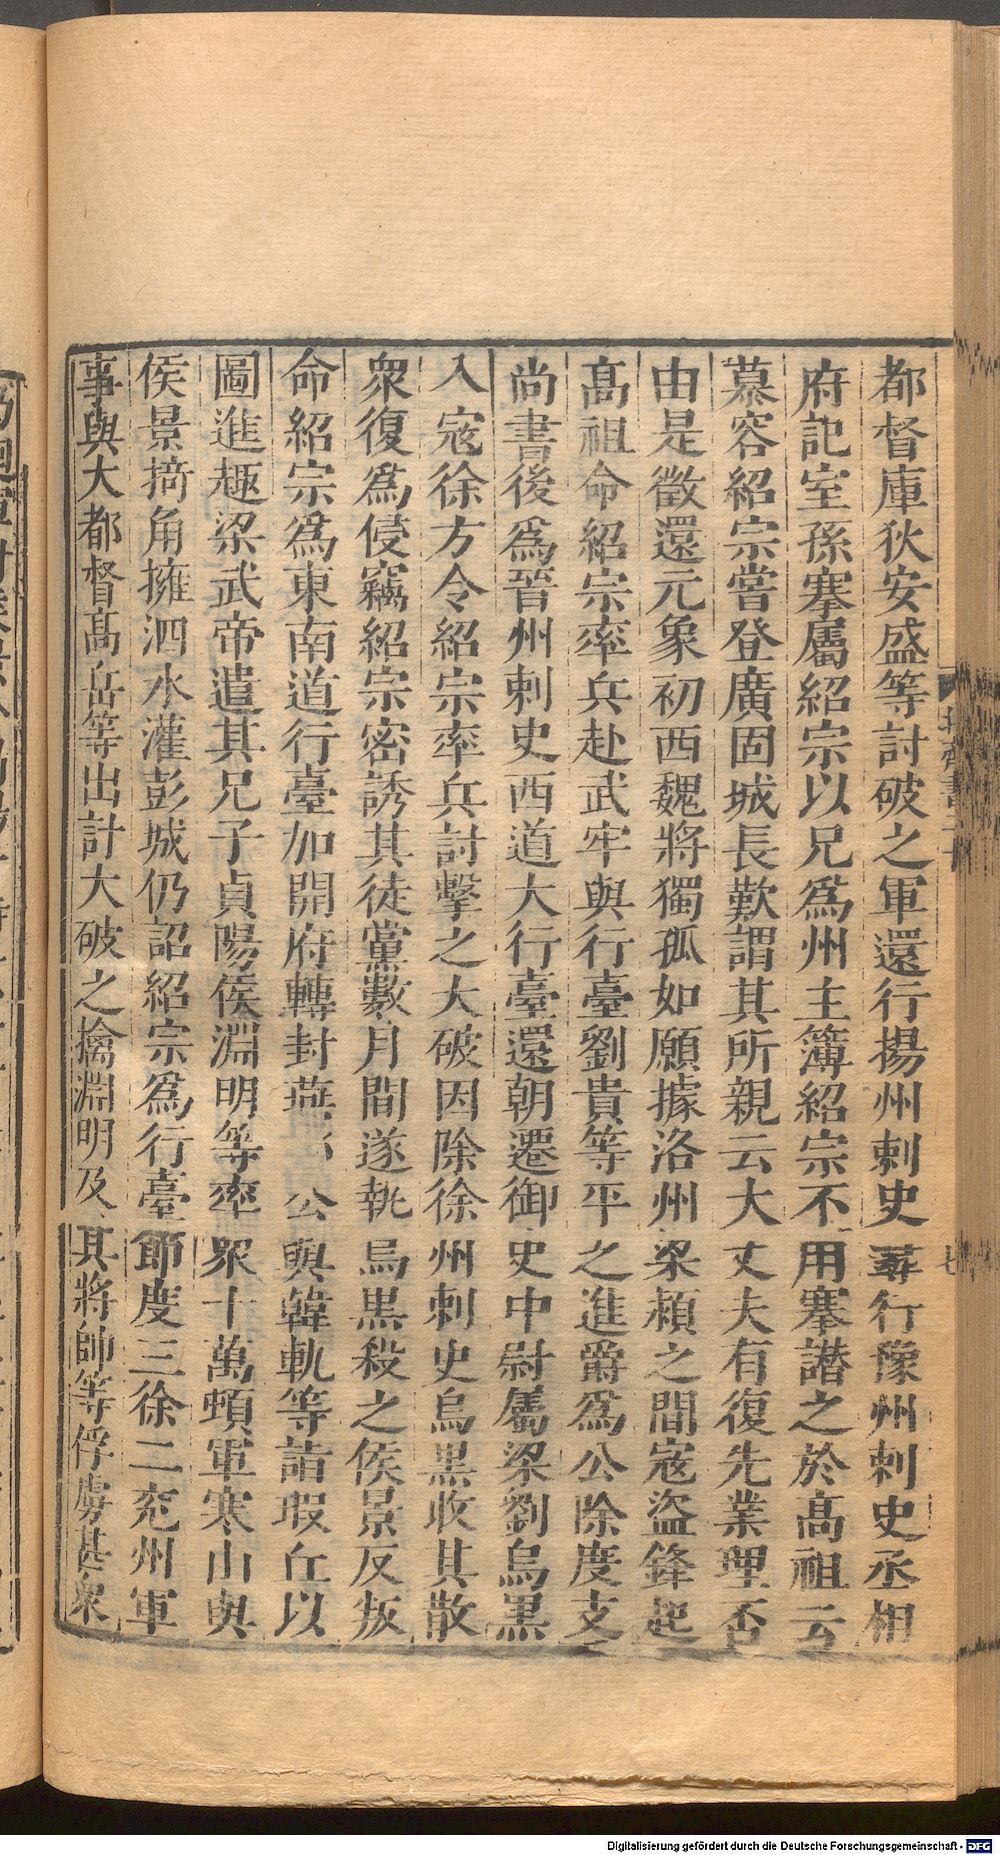 都督庫狄安盛等討破之軍還行揚州刺史尋行豫州刺史丞相
府記室孫搴屬紹宗以兄爲州主簿紹宗不用搴譖之於高祖云
慕容紹宗嘗登廣固城長歎謂其所親云大丈夫有復先業理否
由是徵還元象初西魏將獨孤如願據洛州梁潁之間寇盜鋒起
高祖命紹宗率兵赴武牢與行臺劉貴等平之進爵爲公除度支
尚書後爲晉州刺史西道大行臺還朝遷御史中尉屬梁劉烏黑
入寇徐方令紹宗率兵討擊之大破因除徐州刺史烏黒收其散
衆復爲侵竊紹宗密誘其徒黨數月間遂執烏黒殺之侯景反叛
命紹宗爲東南道行臺加開府轉封燕公與韓軌等詣瑕丘以
圖進趣梁武帝遣其兄子貞陽侯淵明等率衆十萬頓軍寒山與
侯景掎角擁泗水灌彭城仍詔紹宗爲行臺節度三徐二兖州軍
事與大都督高岳等出討大破之擒淵明及其將帥等俘虜甚衆
北齊書二十
七
Digitalisierung gefördert durch die Deutsche Forschungsgemeinschaft - DFG